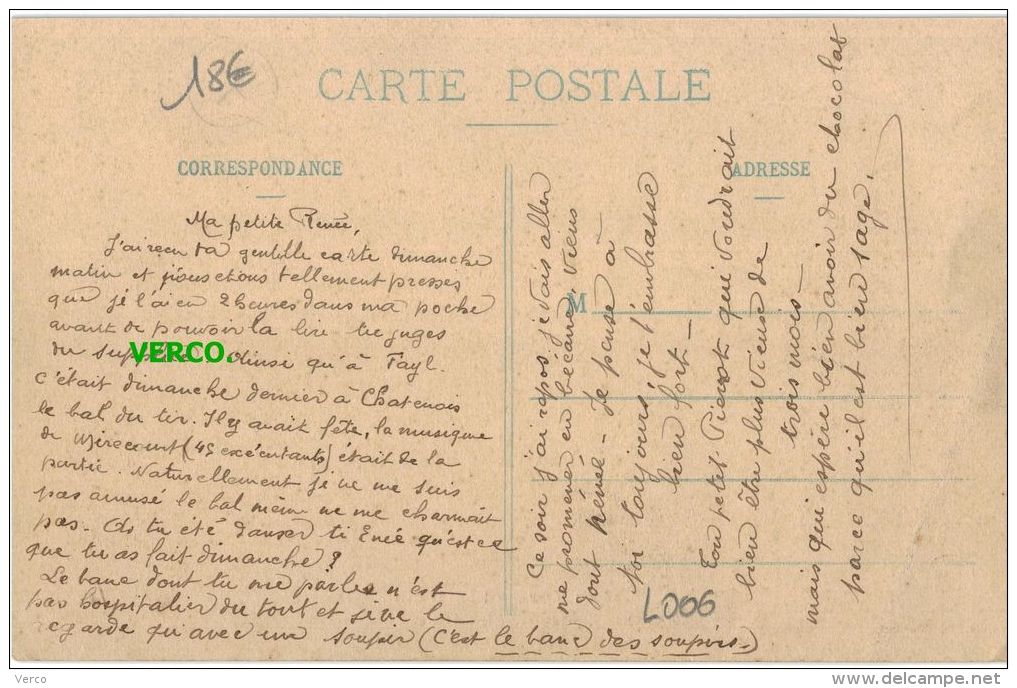 18€
CARTE POSTALE
CORRESPONDANCE
ADRESSE
M
Ma petite Renée,
J'ai reçu ta gentille carte dimanche
matin et nous étions tellement pressés
que je l'ai eu 2 heures dans ma poche
avant de pouvoir la lire tu juges
du supplice. Ainsi qu'à Fayl.
VERCO.
c'était dimanche dernier à Chatenois
le bal du tir. Il y avait fête, la musique
de Mirecourt (45 exécutants) était de la
partie. Naturellement je ne me suis
pas amusé le bal même ne me charmait
pas. As tu été danser ti qu'est ce
que tu as fait dimanche?
Le banc dont tu me parles n'est
pas hospitalier du tout et je ne le
regarde qu'avec un soupir (c'est le banc des soupirs.)
Ce soir j'ai repos, je vais aller
me promener en bécane, viens
dont Renée - Je pense à
toi toujours, je t'embrasse
bien fort -
Ton petit Pierrot qui voudrait
bien être plus vieux de
trois mois -
mais qui espère bien avoir du chocolat
parce qu'il est bien sage.
L006
Verco
http://verco.delcampe.net